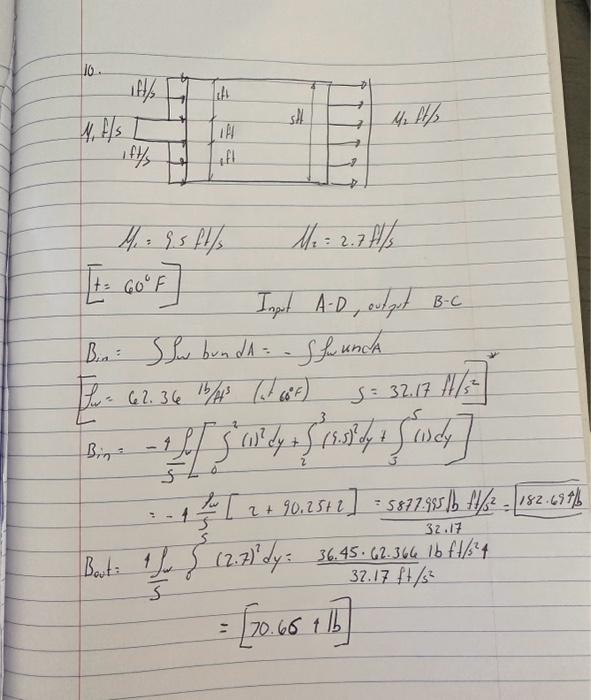 10.
1ft/s
1ft
M₁ f/s
1ft
5ft
M₂ ft/s
1ft/s
M₁ = 9.5 ft/s M₂ = 2.7 ft/s
[t = 60° F]
Input A-D, output B-C
Bin = ∫ ρw bundA = - ∫ ρw undA
[ρw = 62.36 lb/ft³ (at 60°F) g = 32.17 ft/s²]*
Bin = -1 ρw/g [∫₀² (1)² dy + ∫₂³ (9.5)² dy + ∫₃⁵ (1) dy]
= -1 ρw/g [2 + 90.25 + 2] = 5877.995 lb ft/s² / 32.17 = [182.69 1 lb]
Bout = 1 ρw/g ∫₀⁵ (2.7)² dy = 36.45 · 62.366 lb ft/s² 1 / 32.17 ft/s²
= [70.65 1 lb]